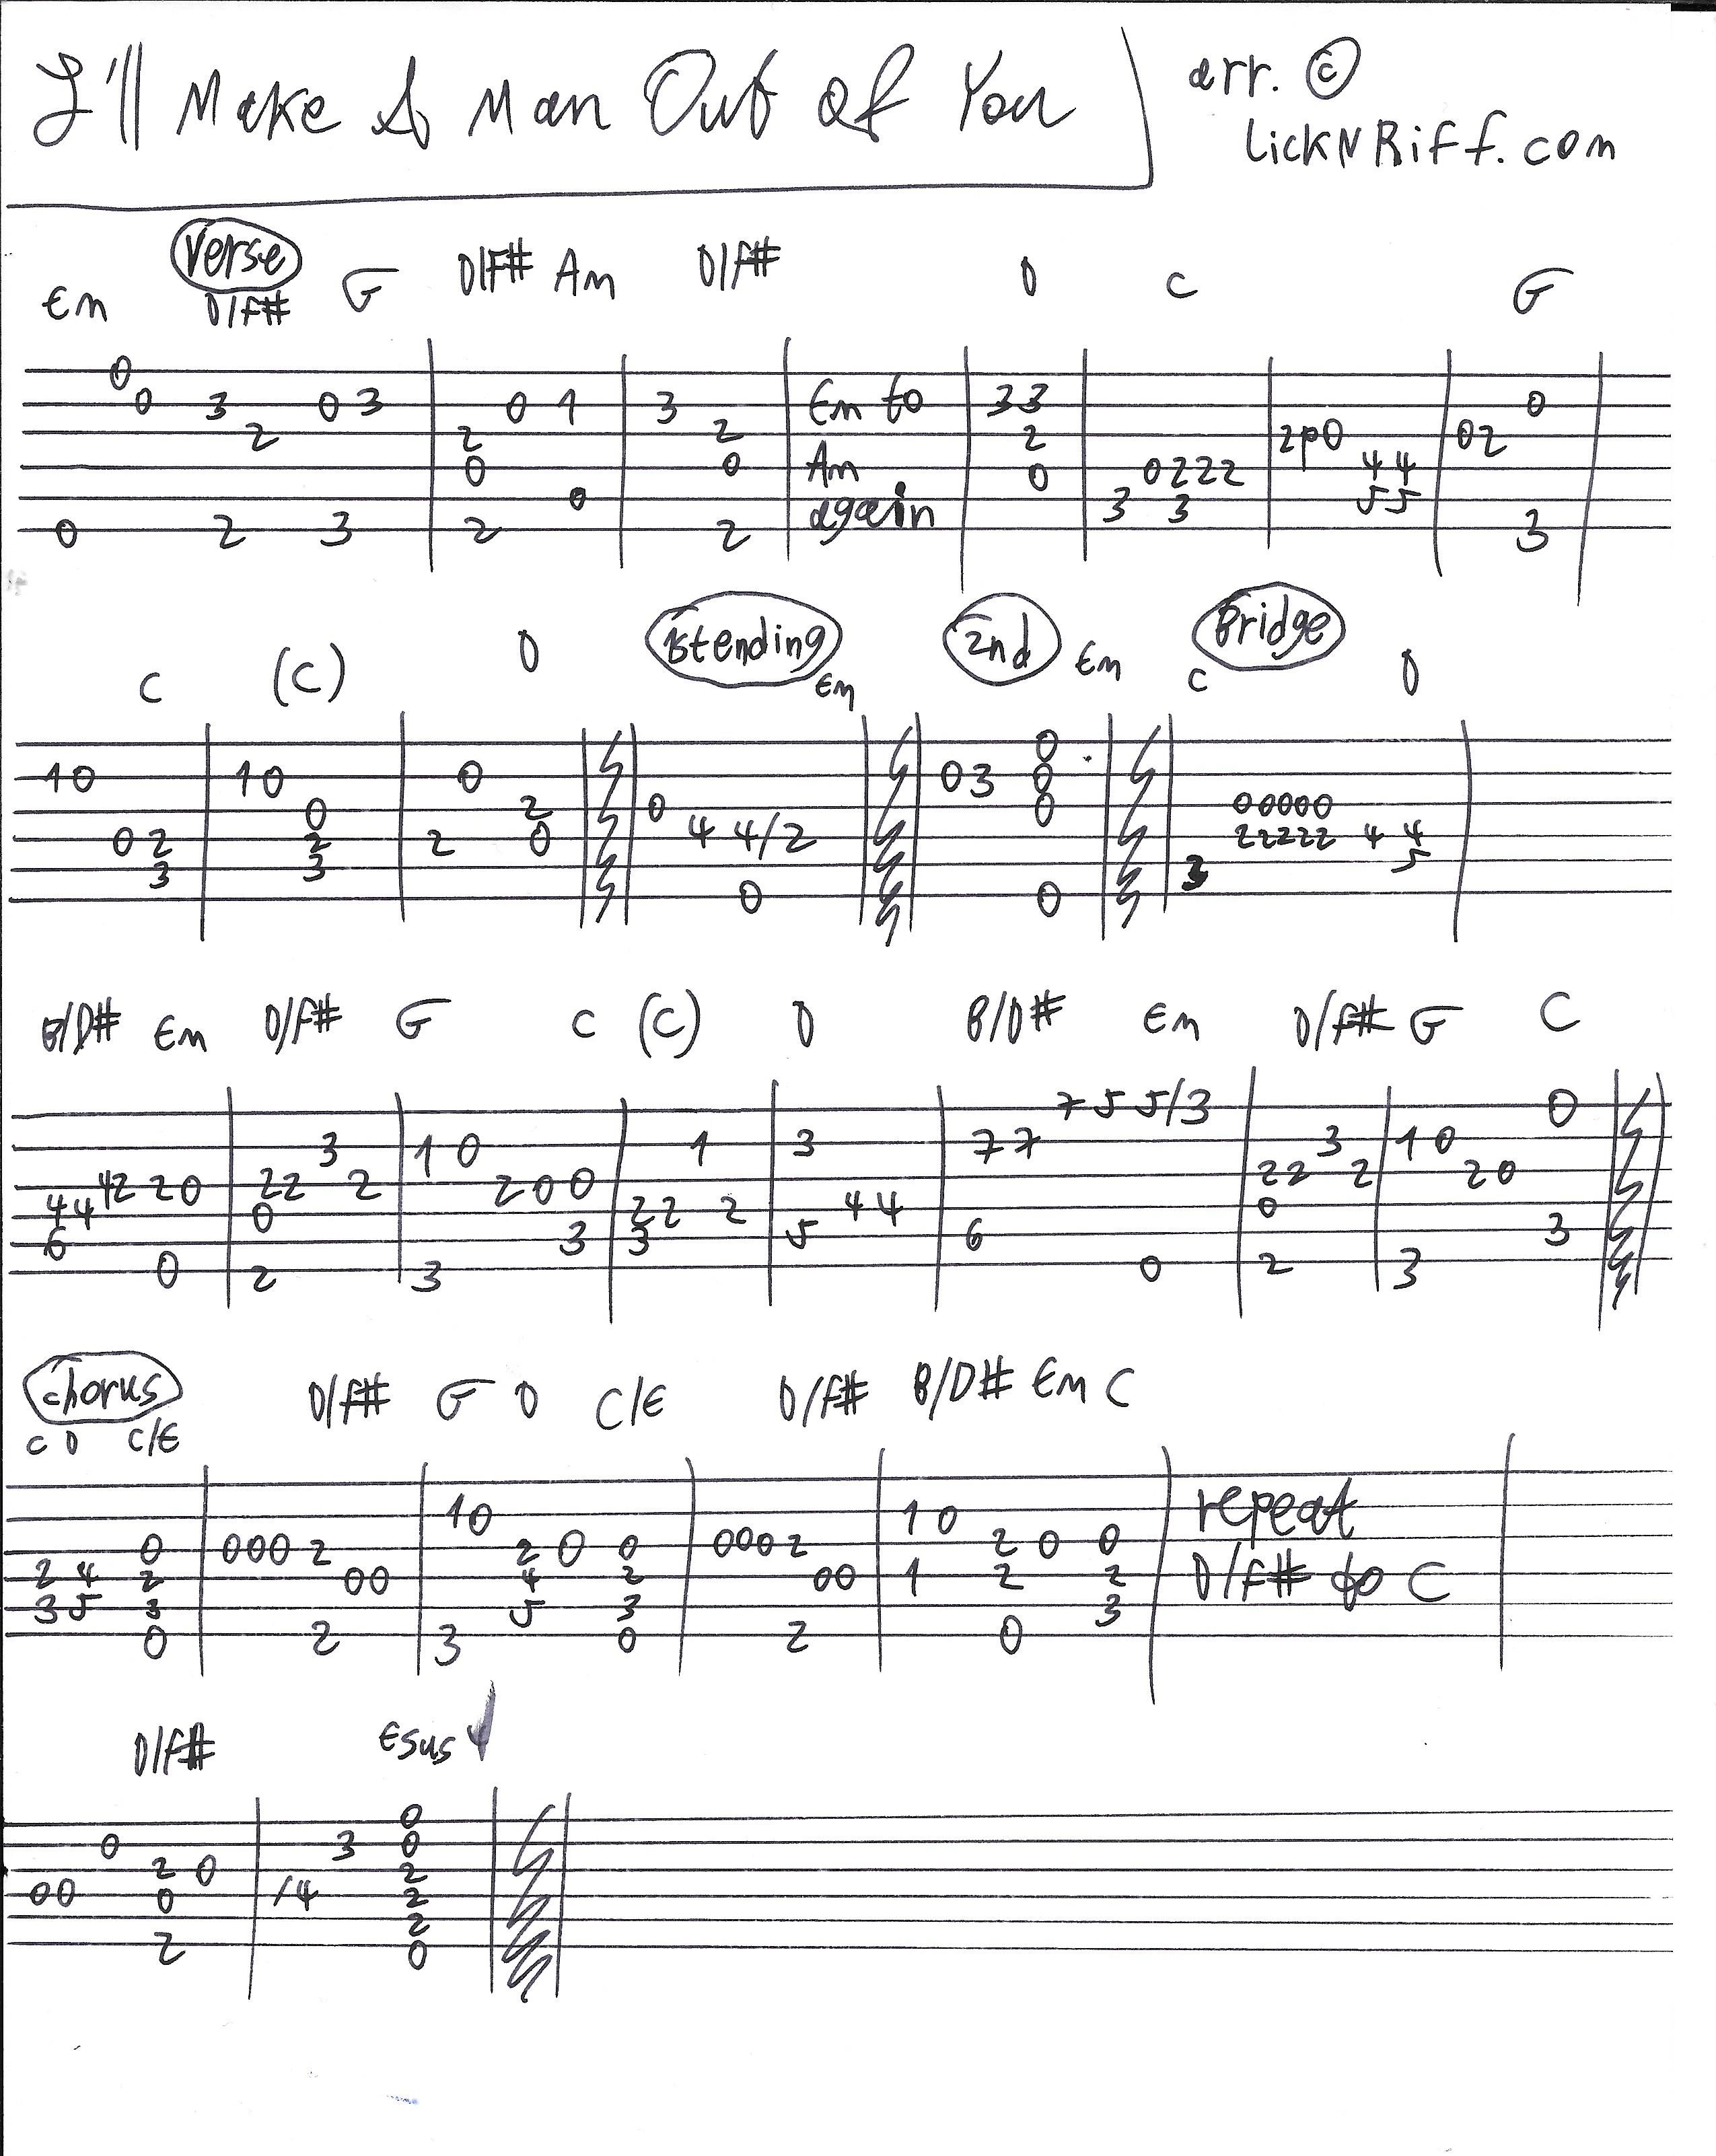 I'll Make A Man Out Of You
arr. ©
LickNRiff.com
Verse
Em D/F# G D/F# Am D/F# D C G
0 0
0 3 0 3 0 1 3 Em to 3 3 0
2 2 2 2 2p0 0 2
0 0 Am 0 0 2 2 2 4 4
0 again 3 3 5 5
0 2 3 2 2 3
1st ending 2nd Bridge
C (C) D Em Em C D
0
1 0 1 0 0 0 3 0
0 2 0 0 0 0 0 0 0
0 2 2 2 0 4 4/2 2 2 2 2 2 4 4
3 3 3 5
0 0
B/D# Em D/F# G C (C) D B/D# Em D/F# G C
7 5 5/3 0
3 1 0 1 3 7 7 3 1 0
4 2 2 0 2 2 2 2 0 0 2 2 2 2 0
4 4 0 2 2 2 4 4 0
6 3 3 5 6 3
0 2 3 0 2 3
Chorus
C D C/E D/F# G D C/E D/F# B/D# Em C
1 0 1 0 repeat
0 0 0 0 2 2 0 0 0 0 0 2 2 0 0
2 4 2 0 0 4 2 0 0 1 2 2 D/F# to C
3 5 3 5 3 3
0 2 3 0 2 0
D/F# Esus4
0
0 3 0
2 0 2
0 0 0 /4 2
2
2 0